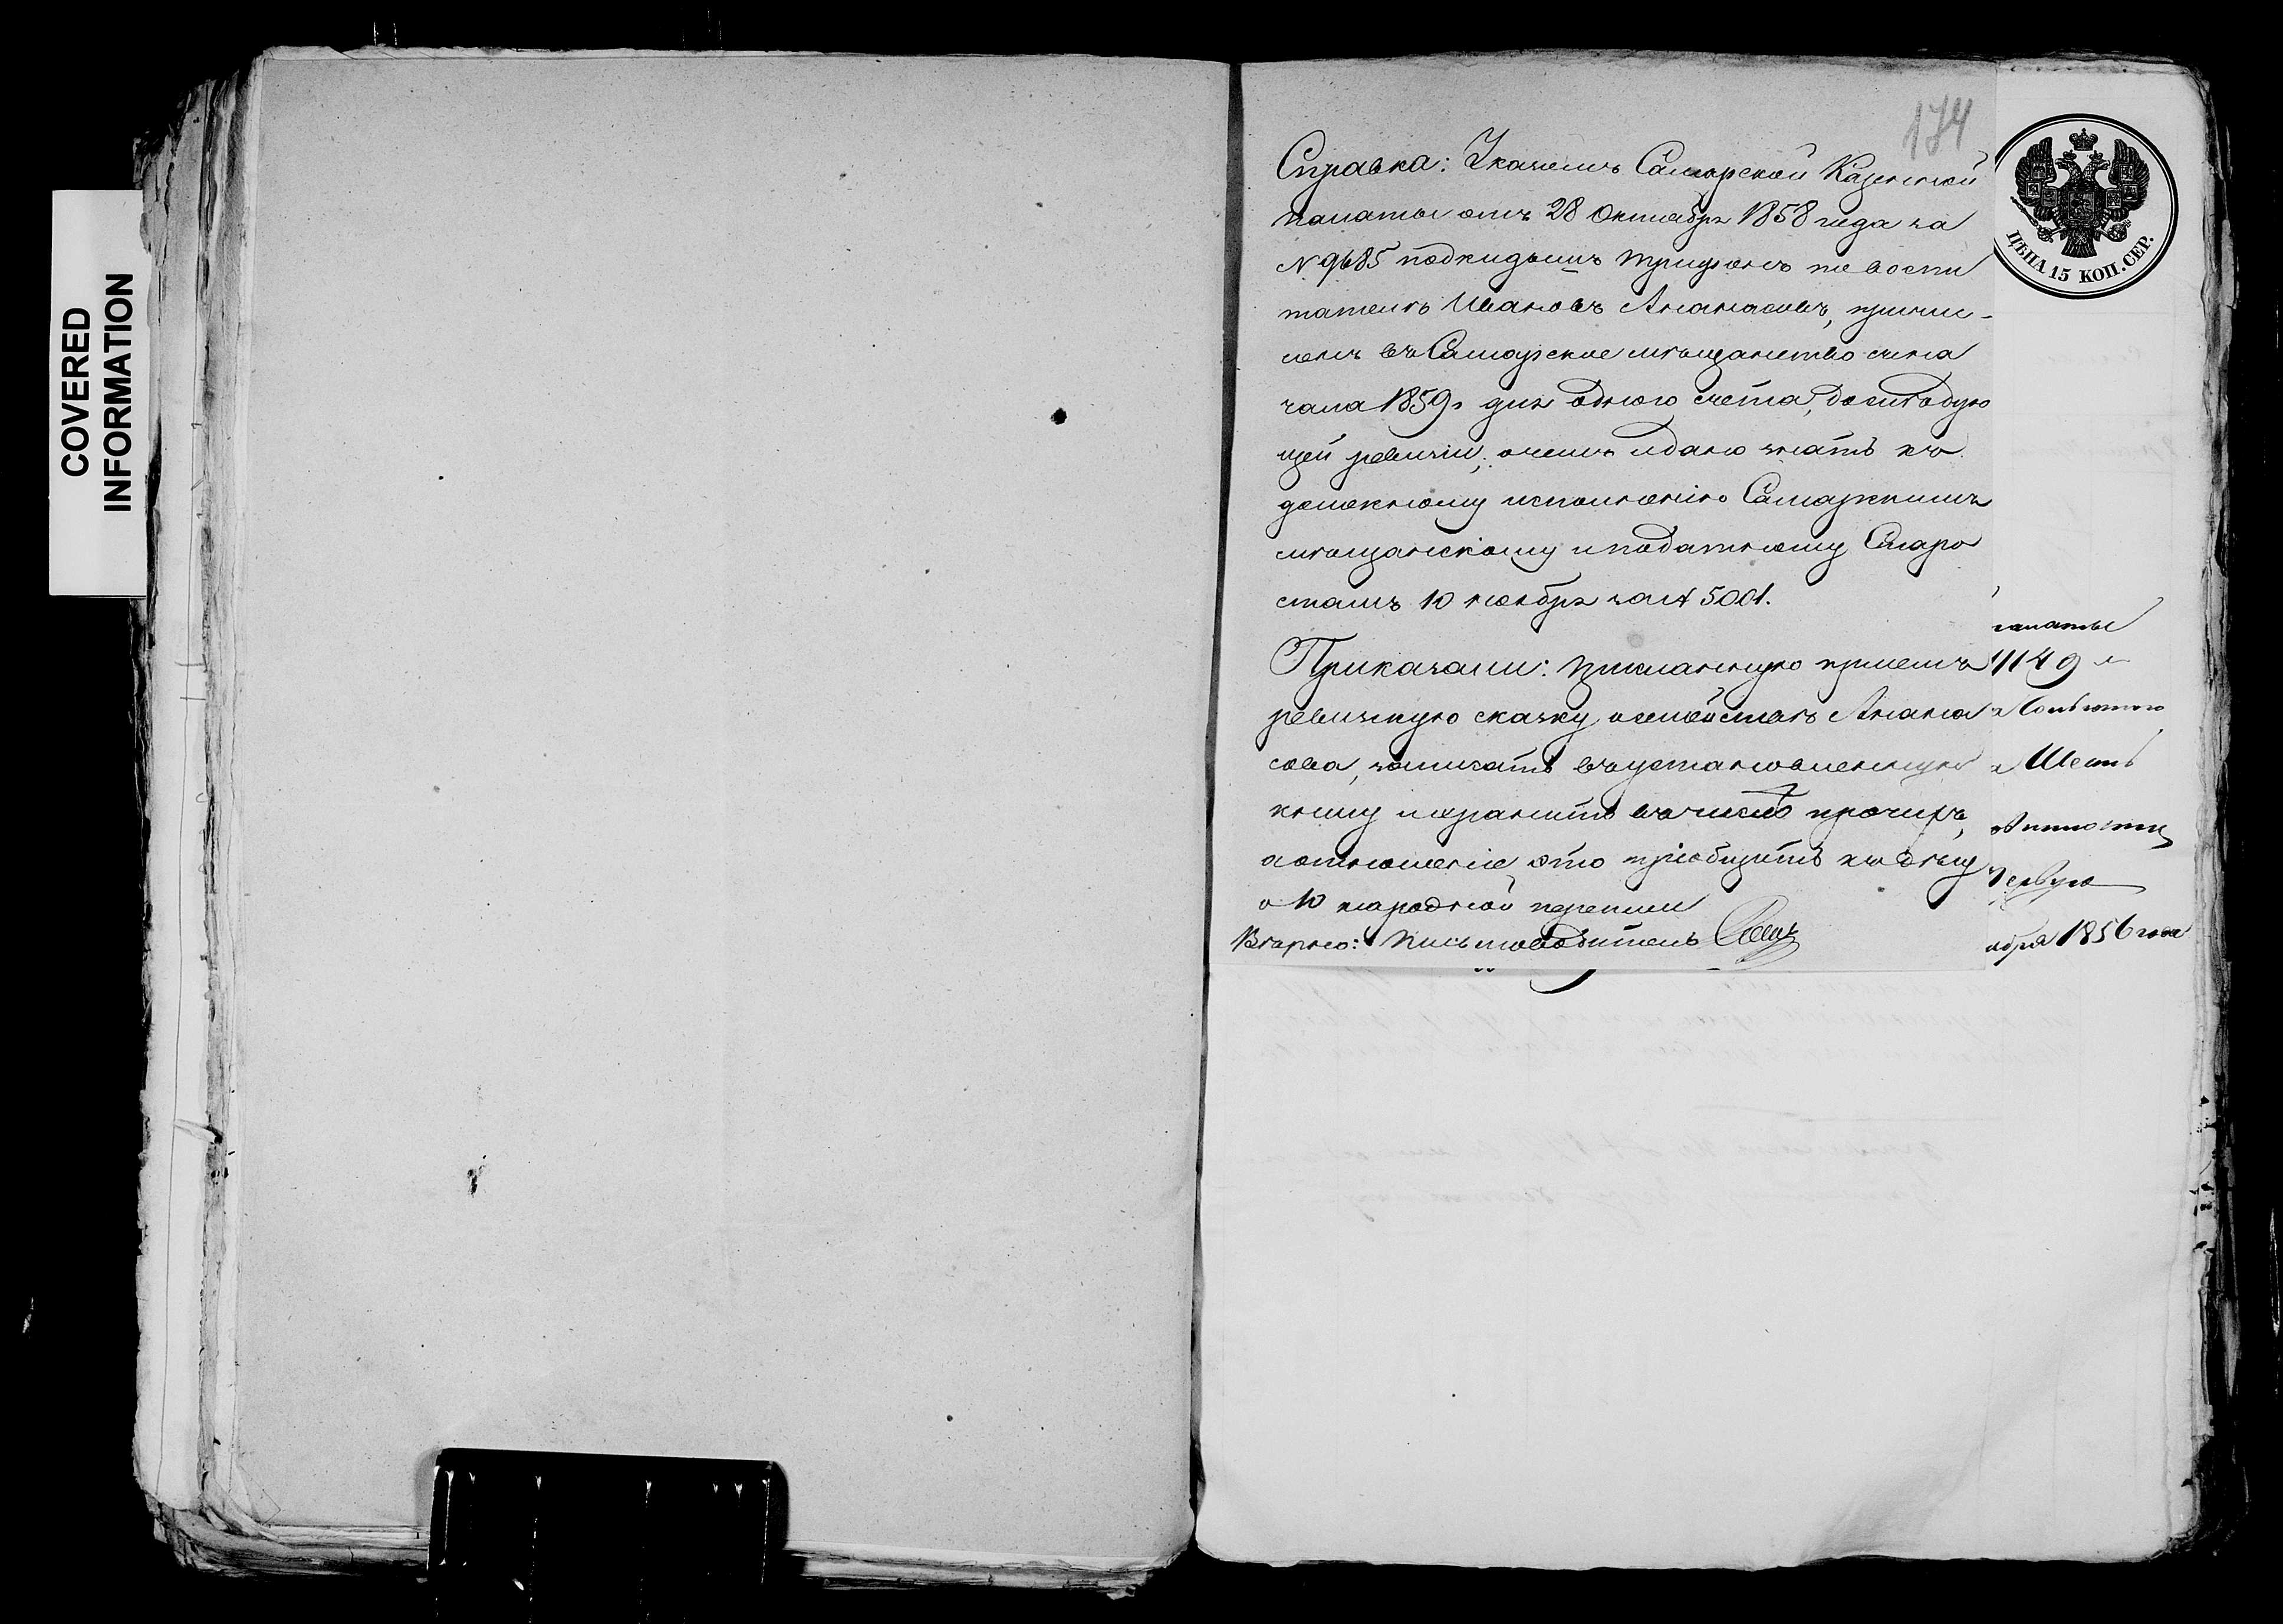 COVERED
INFORMATION
174
Справка: Указомъ Самарской Казенной
палаты отъ 28 Октября 1858 года за
N 9685 подкидышъ Трифонъ по воспи
тателю Ивановъ Ананасовъ, причис-
ленъ въ Самарское мѣщанство съ на
чала 1859 г для одного счета, до слѣдую
щей ревизіи; о чемъ и дано знать къ
должному исполненію Самарскимъ
мѣщанскому и податному Старо
стамъ 10 ноября за N 5001.
Приказали: присланную при семъ
ревизскую сказку о семействѣ Анана
сова, записать въ установленную
книгу и хранить въ числѣ прочихъ,
а отношеніе это пріобщить къ дѣлу
о 10 народной переписи
Вѣрно: Письмоводитель
ЦѢНА 15 КОП. СЕР.
палаты
1149
Шесть
Первую
ября 1856 года